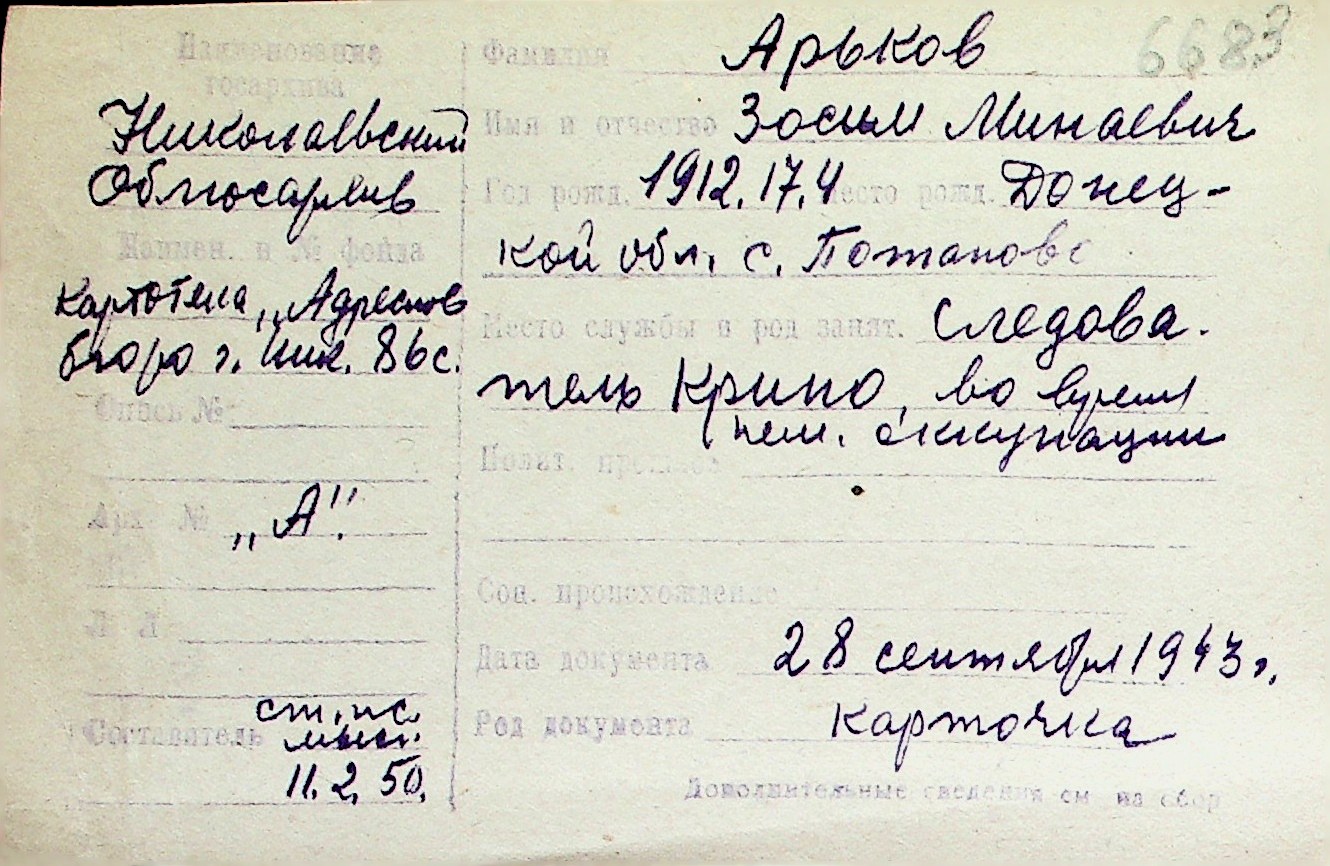 6683
Наименование
госархива
Николаевский
Облгосархив
Наимен. и № фонда
Картотека „Адресное
бюро г. Ник. 86с.
Опись №
Арх №
„А“.
Л Л
Составитель ст. нс.
11.2.50.
Фамилия Арьков
Имя и отчество Зосим Минаевич
Год рожд. 1912.17.4 Место рожд. Донец-
кой обл. с. Потапово
Место службы и род занят. Следова-
тель Крипо, во время
нем. оккупации
Полит. прошлое
Соц. происхождение
Дата документа 28 сентября 1943 г.
Род документа карточка
Дополнительные сведения см на обор